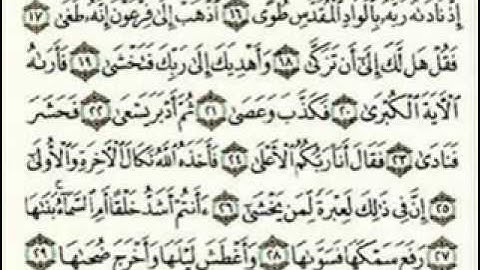 إِذْ نَادَىٰهُ رَبُّهُۥ بِٱلْوَادِ ٱلْمُقَدَّسِ طُوًى ١٦ ٱذْهَبْ إِلَىٰ فِرْعَوْنَ إِنَّهُۥ طَغَىٰ ١٧
فَقُلْ هَل لَّكَ إِلَىٰٓ أَن تَزَكَّىٰ ١٨ وَأَهْدِيَكَ إِلَىٰ رَبِّكَ فَتَخْشَىٰ ١٩ فَأَرَىٰهُ
ٱلْـَٔايَةَ ٱلْكُبْرَىٰ ٢٠ فَكَذَّبَ وَعَصَىٰ ٢١ ثُمَّ أَدْبَرَ يَسْعَىٰ ٢٢ فَحَشَرَ
فَنَادَىٰ ٢٣ فَقَالَ أَنَا۠ رَبُّكُمُ ٱلْأَعْلَىٰ ٢٤ فَأَخَذَهُ ٱللَّهُ نَكَالَ ٱلْـَٔاخِرَةِ وَٱلْأُولَىٰٓ
٢٥ إِنَّ فِى ذَٰلِكَ لَعِبْرَةً لِّمَن يَخْشَىٰٓ ٢٦ ءَأَنتُمْ أَشَدُّ خَلْقًا أَمِ ٱلسَّمَآءُ ۚ بَنَىٰهَا
٢٧ رَفَعَ سَمْكَهَا فَسَوَّىٰهَا ٢٨ وَأَغْطَشَ لَيْلَهَا وَأَخْرَجَ ضُحَىٰهَا ٢٩